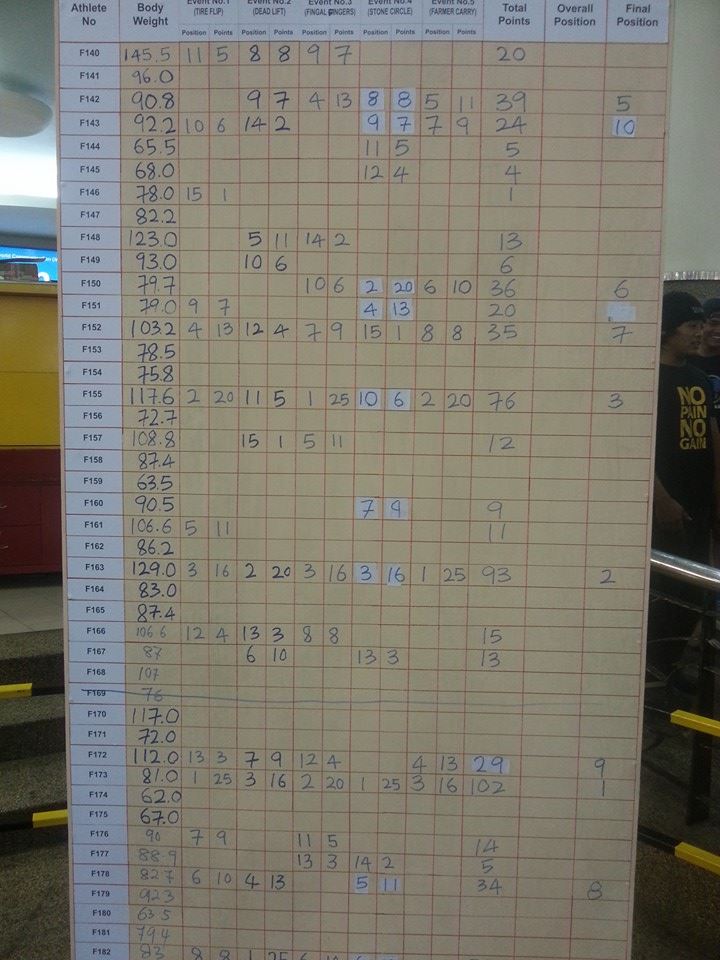 Athlete No Body Weight Event No.1 (TIRE FLIP) Event No.2 (DEAD LIFT) Event No.3 (FINGAL FINGERS) Event No.4 (STONE CIRCLE) Event No.5 (FARMER CARRY) Total Points Overall Position Final Position
Position Points Position Points Position Points Position Points Position Points
F140 145.5 11 5 8 8 9 7 20
F141 96.0
F142 90.8 9 7 4 13 8 8 5 11 39 5
F143 92.2 10 6 14 2 9 7 7 9 24 10
F144 65.5 11 5 5
F145 68.0 12 4 4
F146 78.0 15 1 1
F147 82.2
F148 123.0 5 11 14 2 13
F149 93.0 10 6 6
F150 79.7 10 6 2 20 6 10 36 6
F151 79.0 9 7 4 13 20
F152 103.2 4 13 12 4 7 9 15 1 8 8 35 7
F153 78.5
F154 75.8
F155 117.6 2 20 11 5 1 25 10 6 2 20 76 3
F156 72.7
F157 108.8 15 1 5 11 12
F158 87.4
F159 63.5
F160 90.5 7 9 9
F161 106.6 5 11 11
F162 86.2
F163 129.0 3 16 2 20 3 16 3 16 1 25 93 2
F164 83.0
F165 87.4
F166 106.6 12 4 13 3 8 8 15
F167 87 6 10 13 3 13
F168 107
F169 76
F170 117.0
F171 72.0
F172 112.0 13 3 7 9 12 4 4 13 29 9
F173 81.0 1 25 3 16 2 20 1 25 3 16 102 1
F174 62.0
F175 67.0
F176 90 7 9 11 5 14
F177 88.9 13 3 14 2 5
F178 82.7 6 10 4 13 5 11 34 8
F179 92.3
F180 63.5
F181 79.4
F182 83 8 8 1 25
NO
PAIN
NO
GAIN